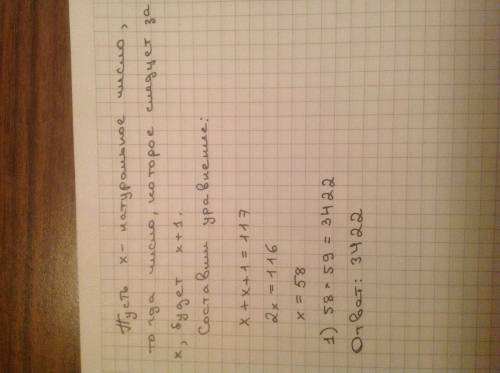 Пусть х - натуральное число,
тогда число, которое следует за
х, будет х+1.
Составим уравнение:
х+х+1=117
2х=116
х=58
1) 58·59=3422
Ответ: 3422